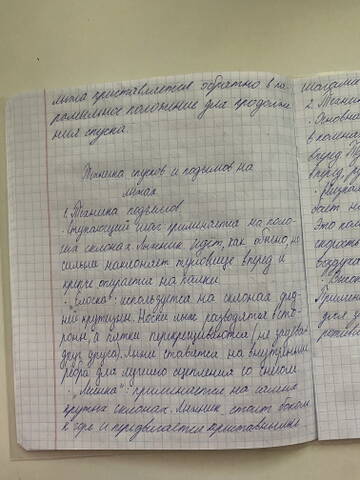 лыжа приставляется обратно в па-
раллельное положение для продолже
ния спуска.
Техника спусков и подъемов на
лыжах
1. Техника подъемов
· Ступающий шаг: применяется на поло-
гих склонах. Лыжник идет, как обычно, но
сильнее наклоняет туловище вперед и
крепче опирается на палки
· "Елочка": используется на склонах сред
ней крутизны. Носки лыж разводятся в сто-
роны, а пятки перекрещиваются (не задевая
друг друга). Лыжи ставятся на внутренние
ребра для лучшего сцепления со снегом
· "Лесенка": применяется на самых
крутых склонах. Лыжник стоит боком
к горе и передвигается приставными
шагами
2. Техни
· Основна
в колен
вперед
вперед, ру
Это пол
скорость
воздуха